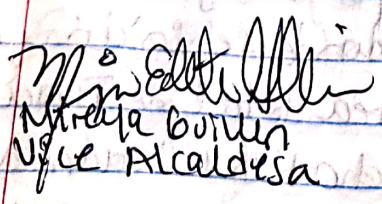 Mireya Guillen
Vice Alcaldesa